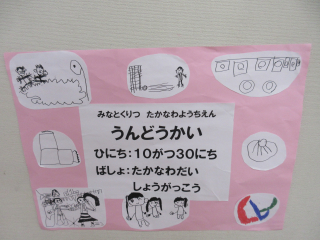 みなとくりつ たかなわようちえん
うんどうかい
ひにち:10がつ30にち
ばしょ:たかなわだい
しょうがっこう